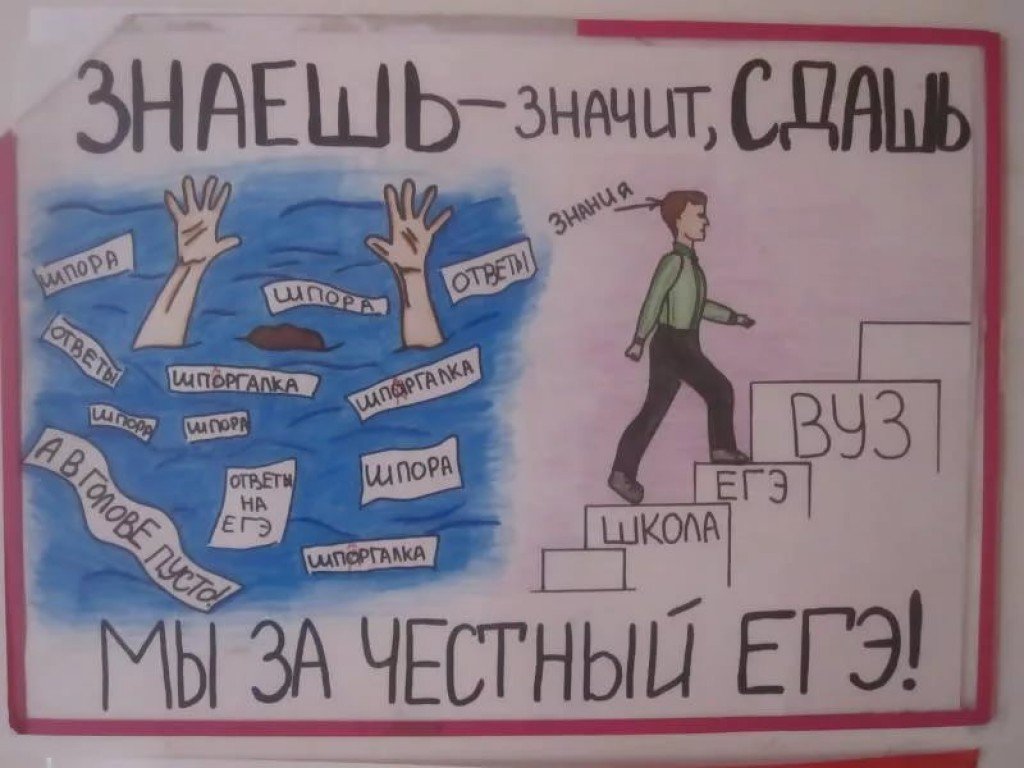 ЗНАЕШЬ – ЗНАЧИТ, СДАШЬ
ШПОРА
ШПОРА
ОТВЕТЫ
ОТВЕТЫ
ШПОРГАЛКА
ШПАРГАЛКА
ШПОРА
ШПОРА
А В ГОЛОВЕ ПУСТО!
ОТВЕТЫ
НА
ЕГЭ
ШПОРА
ШПОРГАЛКА
ЗНАНИЯ
ВУЗ
ЕГЭ
ШКОЛА
МЫ ЗА ЧЕСТНЫЙ ЕГЭ!